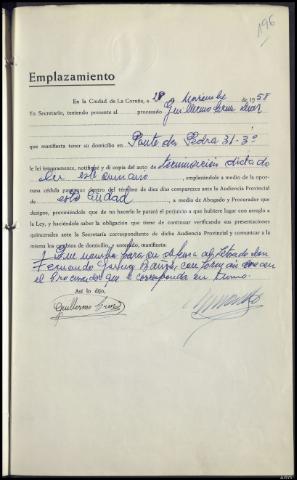 196
Emplazamiento
En la Ciudad de La Coruña, a 28 de Noviembre de 1958
Yo Secretario, teniendo presente al procesado Guillermo
que manifiesta tener su domicilio en Puente de Piedra 31-3º
le leí íntegramente, notifiqué y di copia del auto de terminación dictado
en este sumario, emplazándole a medio de la opor-
tuna cédula para que dentro del término de diez días comparezca ante la Audiencia Provincial
de esta ciudad, a medio de Abogado y Procurador que
designe, previniéndole que de no hacerlo le parará el perjuicio a que hubiere lugar con arreglo a
la Ley, y haciéndole saber la obligación que tiene de continuar verificando sus presentaciones
quincenales ante la Secretaría correspondiente de dicha Audiencia Provincial y comunicar a la
misma los cambios de domicilio, y enterado, manifiesta:
Que nombra para su defensa al letrado don
Fernando, con
el Procurador que le corresponda en turno.
Así lo dijo,
Guillermo